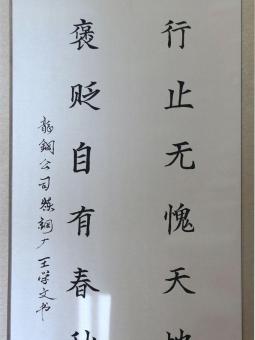 行止无愧天地
褒贬自有春秋
龙钢公司炼钢厂王学文书